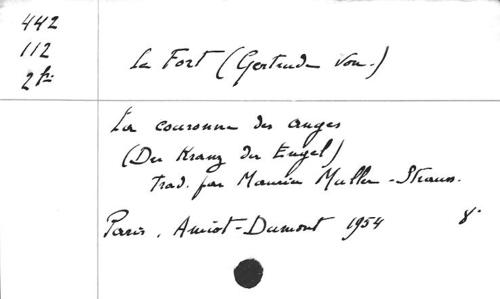 442
112
2 fr
Le Fort (Gertrude von.)
La couronne des anges
(Der Kranz der Engel)
Trad. par Maurice Muller-Strauss.
Paris, Amiot-Dumont 1954 8°